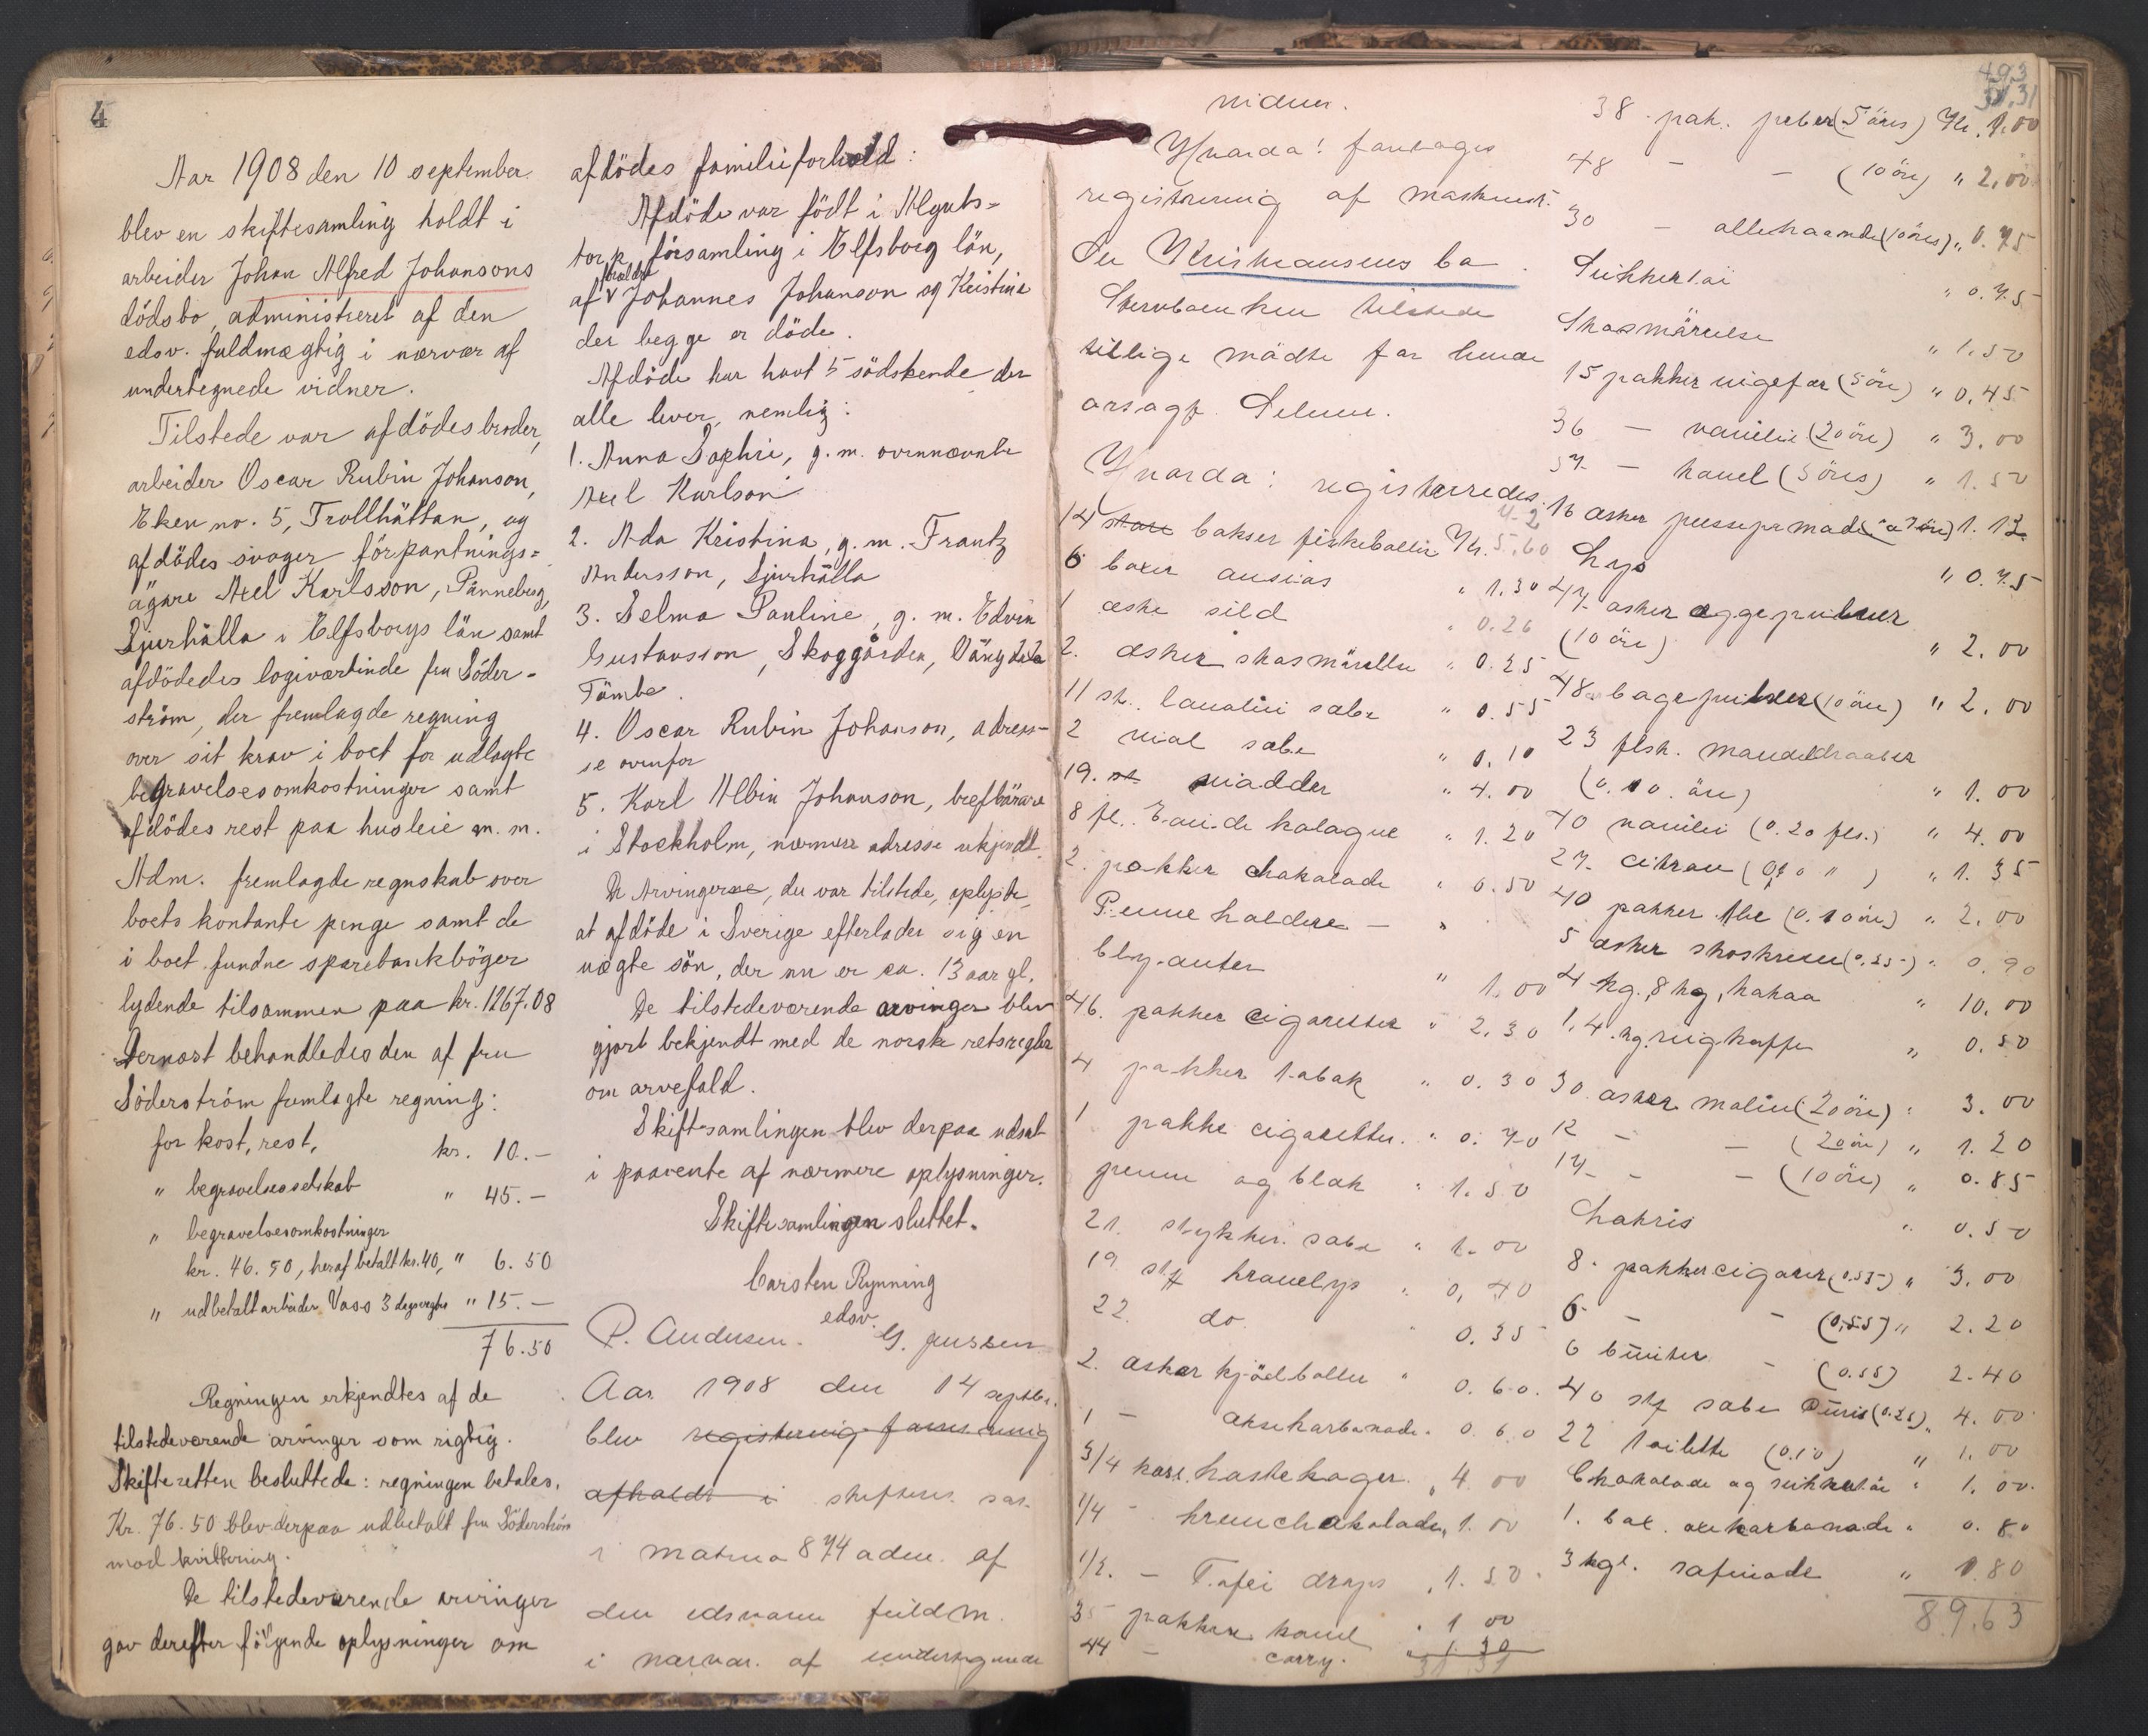 4
Aar 1908 den 10 september
blev en skiftesamling holdt i
arbeider Johan Alfred Johansons
dödsbo, administreret af den
edsv. fuldmægtig i nærvær af
undertegnede vidner.
Tilstede var afdödes broder,
arbeider Oscar Rubin Johanson,
Eken no. 5, Trollhättan, og
afdödes svoger förpantnings=
ägare Axel Karlsson, Pänneberg,
Ljurhälla i Elfsborgs län samt
afdödedes logivertinde fru Söder-
ström, der fremlagde regning
over sit krav i boet for udlagte
begravelsesomkostninger samt
afdödes rest paa husleie m. m.
Adm. fremlagde regnskab over
boets kontante penge samt de
i boet fundne sparebankböger
lydende tilsammen paa kr. 1267.08
Dernæst behandledes den af fru
Söderström fremlagte regning:
for kost, rest, kr. 10.-
" begravelsesselskab " 45.-
" begravelsesomkostninger
kr. 46.50, heraf betalt kr. 40, " 6.50
" udbetalt arbeider Vass 3 " 15.-
76.50
Regningen erkjendtes af de
tilstedeværende arvinger som rigtig.
Skifteretten besluttede: regningen betales.
Kr. 76.50 blev derpaa udbetalt fru Söderström
mod kvittering.
De tilstedeværende arvinger
gav derefter fölgende oplysninger om
afdödes familieforhold:
Afdöde var födt i Alguts=
torp församling i Elfsborg län,
af forældre Johannes Johanson og Kristina
der begge er döde.
Afdöde har havt 5 södskende der
alle lever, nemlig:
1. Anna Sophie, g. m. ovennævnte
Axel Karlson
2. Ada Kristina, g. m. Frantz
Andersson, Ljurhälla
3. Selma Pauline, g. m. Edvin
Gustavsson, Skoggården,
Tämbe.
4. Oscar Rubin Johanson, adres-
se ovenfor
5. Karl Albin Johanson, brefbärare
i Stockholm, nærmere adresse ukjendt.
De Arvingerne, der var tilstede, oplyste,
at afdöde i Sverige efterlader sig en
uægte sön, der nu er ca. 13 aar gl.
De tilstedeværende arvinger blev
gjort bekjendt med de norske retsregler
om arvefald.
Skiftesamlingen blev derpaa udsat
i paavente af nærmere oplysninger.
Skiftesamlingen sluttet.
Carsten Rynning
edsv.
P. Andersen. G. Jenssen
Aar 1908 den 14 septbr.
blev registrering
afholdt i skifteres. sar.
i matr. no 874 adm. af
den edsvorne fuldm.
i nærvær. af undertegnede
vidner.
Hvorda: foretages
registrering af
Fru Kristiansens bo.
Stervboenken tilstede
tillige mödte for hende
orsagf. Selmer.
Hvorda: registreredes.
14 store bokser fiskeboller Kr. 5.60
6 boxer ansios " 1.30
1 æske sild " 0.26
2. æsker skosmörelse " 0.25
11 st. lanolin sæbe " 0.55
2 viol sæbe " 0.10
19. st. " 4.00
8 fl. Eau de kologne " 1.20
2. pakker chokolade " 0.50
Penne holdere - "
bly-anter " 1.00
46. pakker cigaretter " 2.30
4 pakker tobak " 0.30
1 pakke cigaretter. " 0.70
penne og blæk " 1.50
21. stykker. sæbe " 1.00
19 stk kronelys " 0,40
22. do " 0.35
2. æsker kjödboller " 0.60.
1 - oksekarbonade. 0.60
3/4 kass. kastekager. " 4 00
1/4 - kremchokolade " 1.00
1/2. - Tofei drops " 1.50.
35 pakker kanel " 1 00
44 - carry. " 1 30
31 31
493
31.31
38. pak. peber (5 öres) Kr. 1.00
48 - - (10 öre) " 2.00
30 - allehaande (10 öres) " 0.75
Sukkertöi " 0.75
Skosmörelse " 1.50
15 pakker ingefær (5 öre) " 0.45
36 - vanilie (20 öre) " 3.00
57 - kanel (5 öres) " 1.50
16 æsker pussepomade 1.12
Lys " 0.75
47 æsker eggepulver
(10 öre) " 2.00
48 bagepulver (10 öre) " 2.00
23 flsk. mandeldraaber
(0.10. öre) " 1.00
40 vanilie (0.20 fls.) " 4.00
27. citron " 1.35
40 pakker the (0.10 öre) " 2.00
5 æsker skoskrem (0.25) " 0.90
4 kg. 8 hg, kakao " 10.00
1.4 kg rugkaffe " 0.50
30 æsker malin (20 öre) " 3.00
12 - - (20 öre) " 1.20
17 - - (10 öre) " 0.85
Lakris " 0.50
8. pakker cigarer (0.55) " 3.00
6 - - (0.55) " 2.20
6 bunter - (0.55) 2.40
40 stk sæbe (0.25) " 4.00
22 toilette (0.10) " 1.00
Chokolade og sukkertöi " 1.00.
1. box. oxekarbonade " 0.80
3 kgl. rafinade " 1.80
89.63